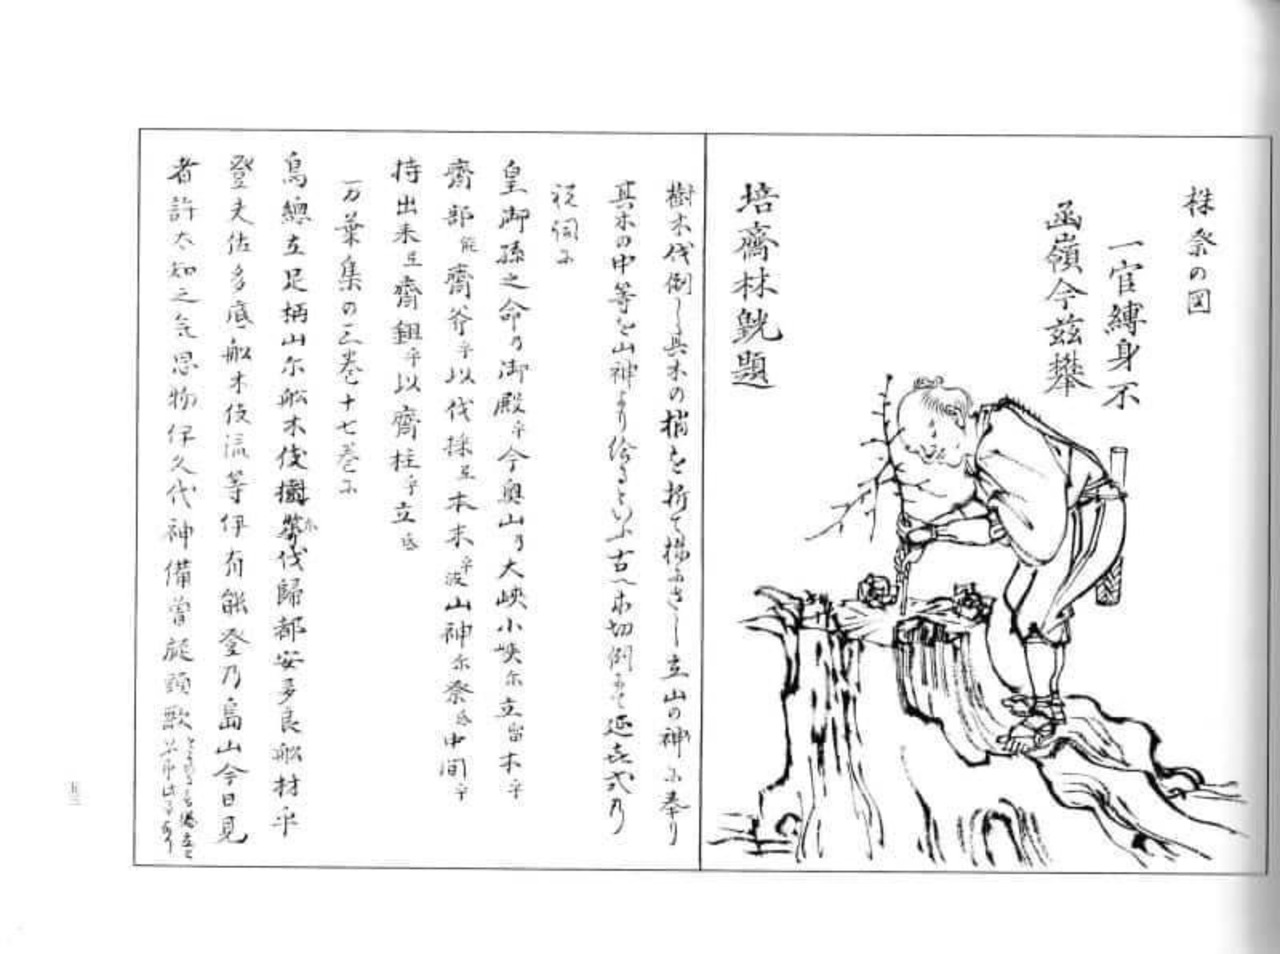 株祭の図
一官縛身不
函嶺今茲攀
培齋林鮡題
樹木伐倒し其木の梢を折て株にさし立山の神に奉り
其木の中等を山神より給るといふ古へ木切倒には延喜式乃
祝詞に
皇御孫之命乃御殿乎今奥山乃大峡小峡尓立留木乎
齋部能齋斧乎以伐採弖本末乎波山神尓祭弖中間乎
持出来弖齋鉏乎以齋柱乎立弖
万葉集の三巻十七巻に
鳥總立足柄山尓船木伐樹尓伐歸都安多良船材乎
登夫佐多底船木伎流等伊有能登乃島山今日見
者許太知之気思物伊久代神備曽旋頭歌
五三